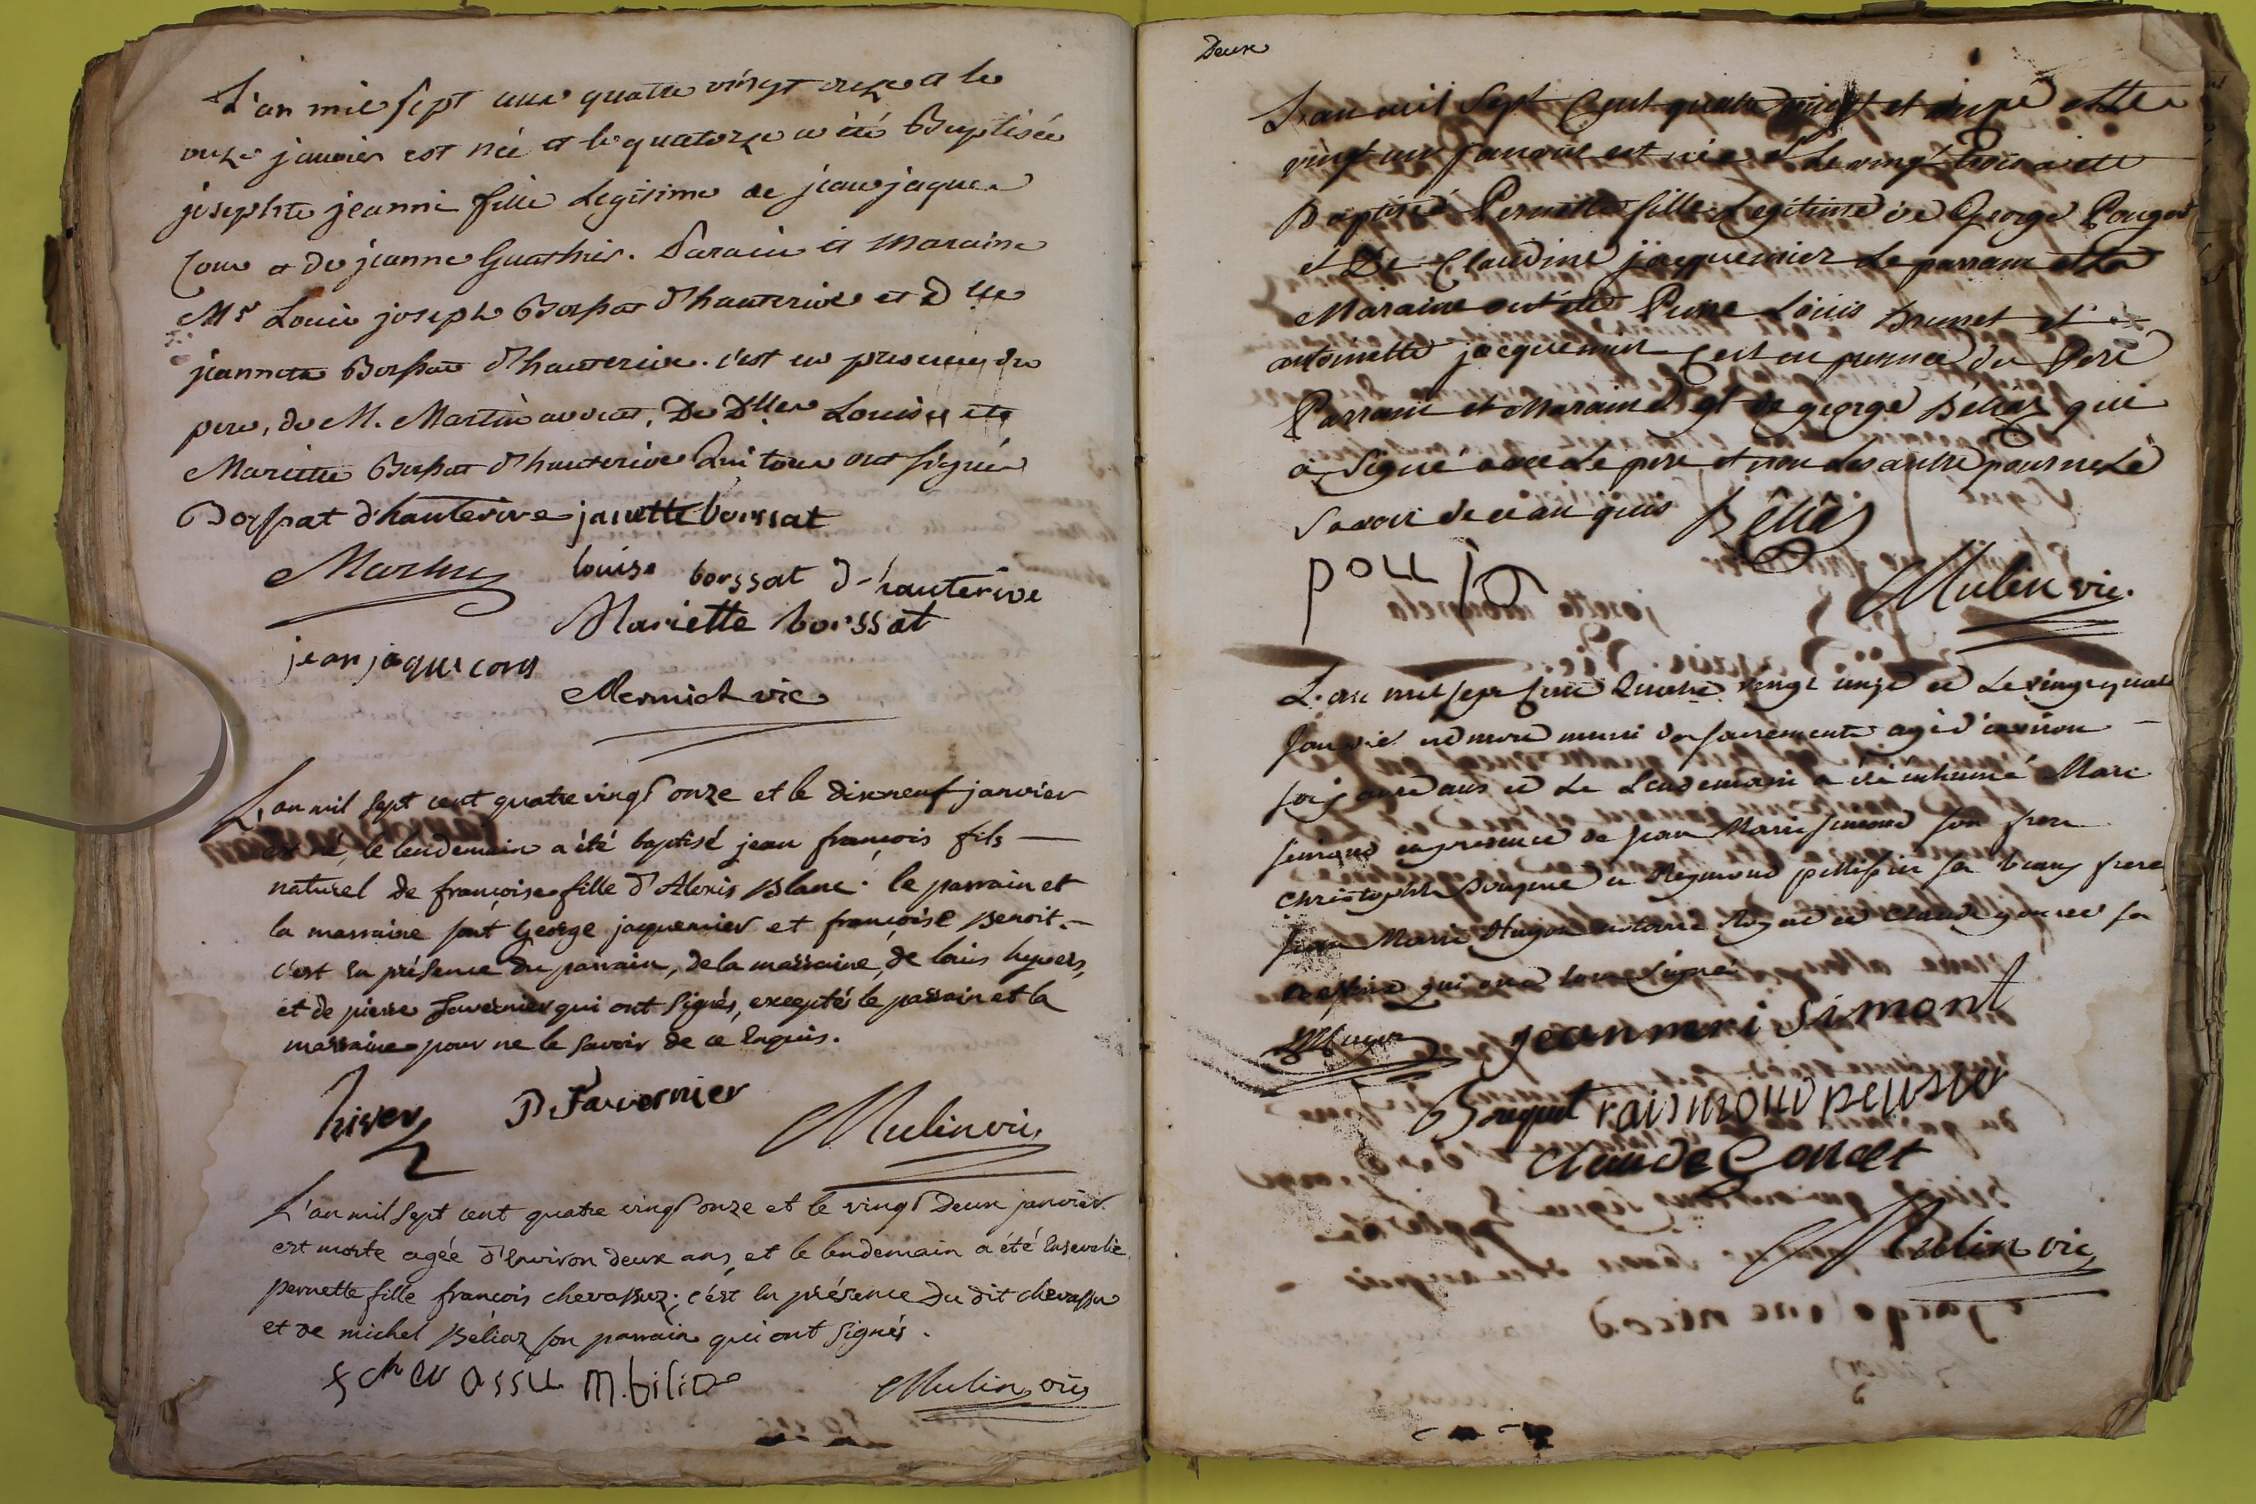 L'an mil sept cent quatre vingt onze et le
onze janvier est née et le quatorze a été Baptisée
josephte jeanne fille Legitime de jean jaque
Cons et de jeanne Guathier. Parain et Maraine
Mr Louis joseph Borssat d'hauterive et Dlle
jeannette Borssat d'hauterive. c'est en presence du
pere, de M. Martin avocat, De Dlles Louise et
Mariette Borssat d'hauterive Qui tous ont signés
Borssat d'hauterive janette borssat
Martin louise borssat d'hauterive
Mariette borssat
jean jaque cons
Mermiet vic
L'an mil sept cent quatre vingt onze et le dixneuf janvier
est né, le lendemain a été baptisé jean françois fils
naturel de françoise fille d'Alexis Blanc. le parrain et
la marraine sont George jaquemier et françoise Benoit.
c'est en présence du parrain, de la marraine, de louis hyvers,
et de pierre favernier qui ont signés, exceptés le parrain et la
marraine pour ne le savoir de ce enquis.
hiver P Favernier Mulin vic
L'an mil sept cent quatre vingt onze et le vingt deux janvier
est morte agée d'environ deux ans, et le lendemain a été ensevelie
pernette fille françois chevassuz; c'est en présence du dit chevassu
et de michel Béliaz son parrain qui ont signés.
f chevassu m. bilia Mulin vic
Deux
L'an mil Sept Cent quatre vingt et onze et le
vingt un janvier est née et le vingt trois a ete
Baptisé Pernette fille Legitime de George
et De Claudine jacquemier Le parrain et la
Maraine ont été Pierre Louis Brunet et
antoinette jacquemier C'est en presence du Pere
Parrain et Maraine et de george Béliaz qui
a Signé avec le pere et non les autre pour ne le
Savoir de ce anquis Béliaz
Mulin vic.
L'an mil sept Cent Quatre vingt onze et le vingt quatre
Janvier est mort muni des sacrements agé d'environ
soixante ans et le Lendemain a été inhumé Marc
Simond en presence de Jean Marie Simond son frere
Christophle Bouquet et Reymond pellissier ses beaux freres
Jean Marie Hugon antoine et Claude gonet
qui ont tous signé
jean meri Simont
Bouquet raismond peusier
Claude Gonet
Mulin vic